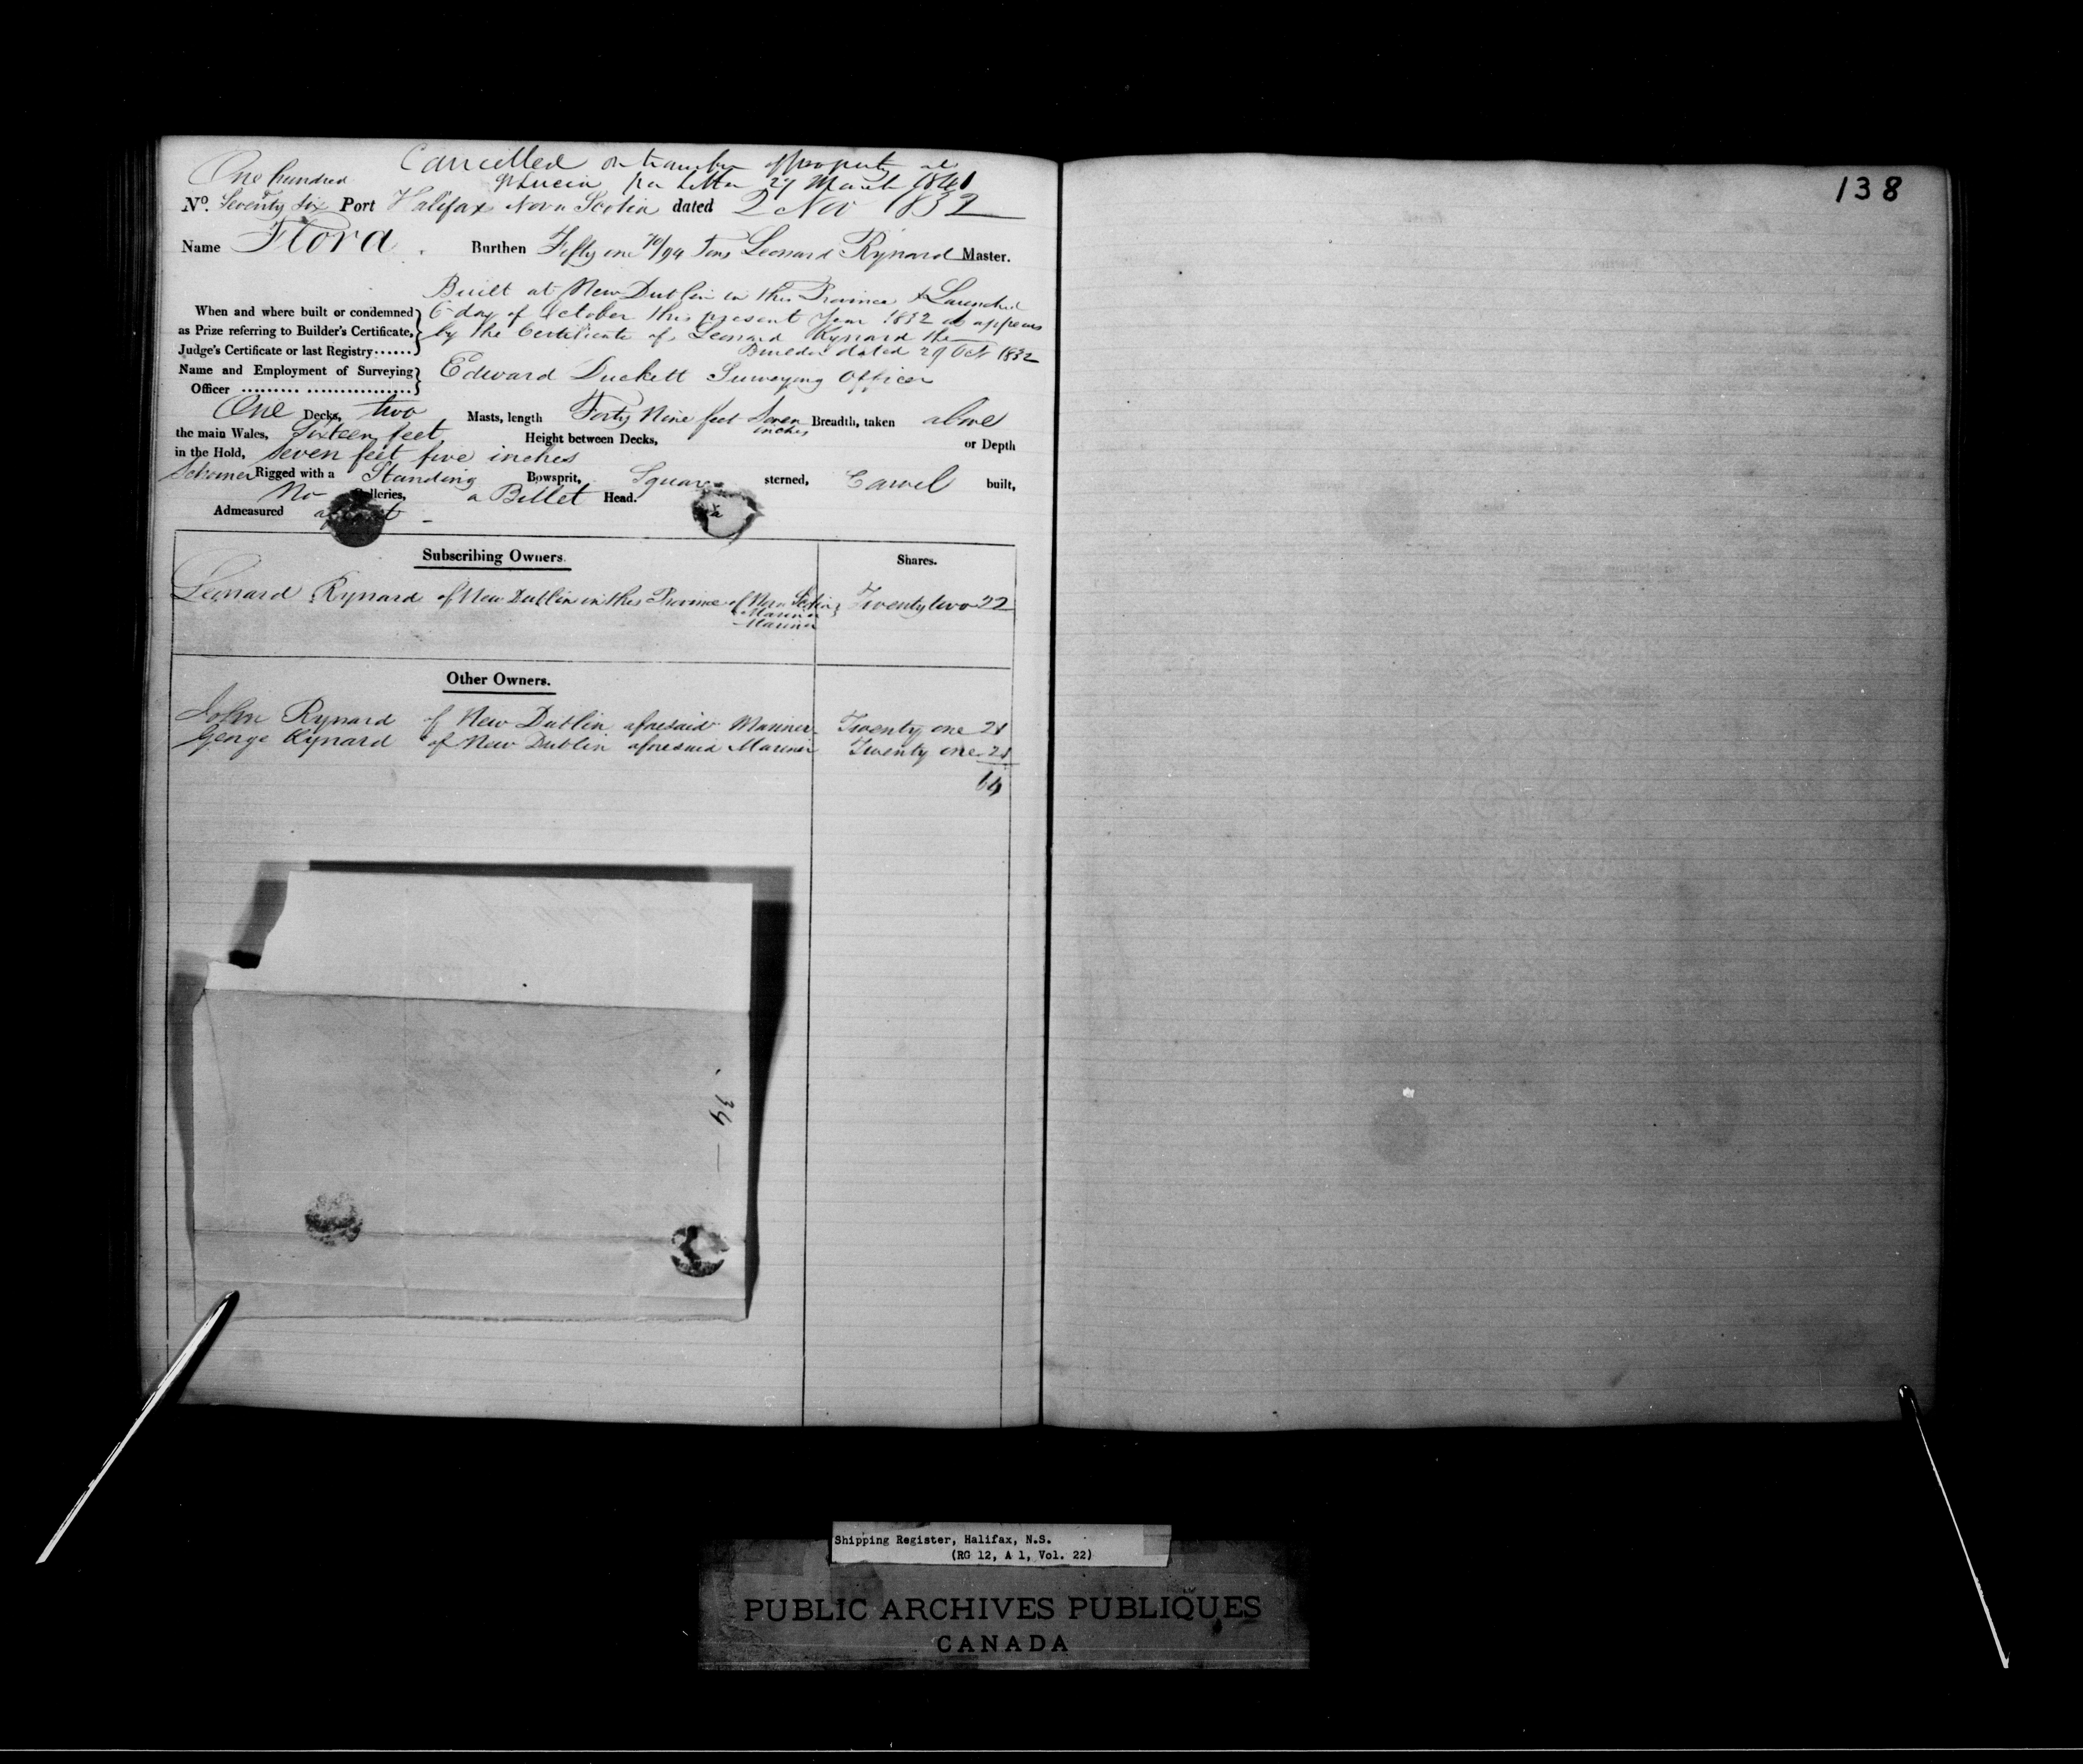 Cancelled on transfer of property at
St Lucia per Letter 27 March 1841
One hundred
No. Seventy Six Port Halifax Nova Scotia dated 2 Nov 1832
Name Flora. Burthen Fifty one 70/94 Tons Leonard Rynard Master.
Built at New Dublin in this Province & Launched
When and where built or condemned 6 day of October this present Year 1832 as appears
as Prize referring to Builder's Certificate, by the Certificate of Leonard Rynard the
Judge's Certificate or last Registry...... Builder dated 29 Oct 1832
Name and Employment of Surveying Edward Duckett Surveying Officer
Officer .......... ..................
One Decks, two Masts, length Forty Nine feet Seven inches Breadth, taken above
the main Wales, Sixteen feet, Height between Decks, or Depth
in the Hold, Seven feet five inches
Schooner Rigged with a Standing Bowsprit, Square sterned, Carvel built,
No Galleries, a Billet Head.
Admeasured afloat
Subscribing Owners. Shares.
Leonard Rynard of New Dublin in this Province of Nova Scotia Twenty two 22
Mariner
Mariner
Other Owners.
John Rynard of New Dublin aforesaid Mariner Twenty one 21
George Rynard of New Dublin aforesaid Mariner Twenty one 21
64
34 —
138
Shipping Register, Halifax, N.S.
(RG 12, A 1, Vol. 22)
PUBLIC ARCHIVES PUBLIQUES
CANADA